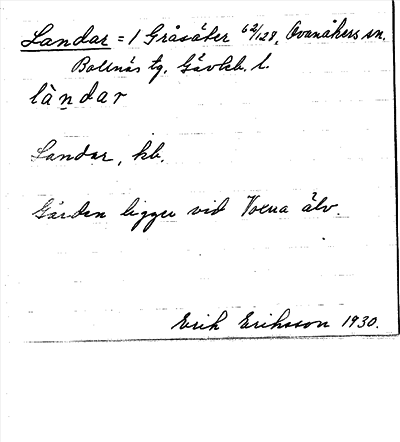 Landar = 1 Gråsäter 62/128, Ovanåkers sn.
Bollnäs tg. Gävleb. l.
làṇdar
Landar, kb.
Gården ligger vid Voxna älv.
Erik Eriksson 1930.